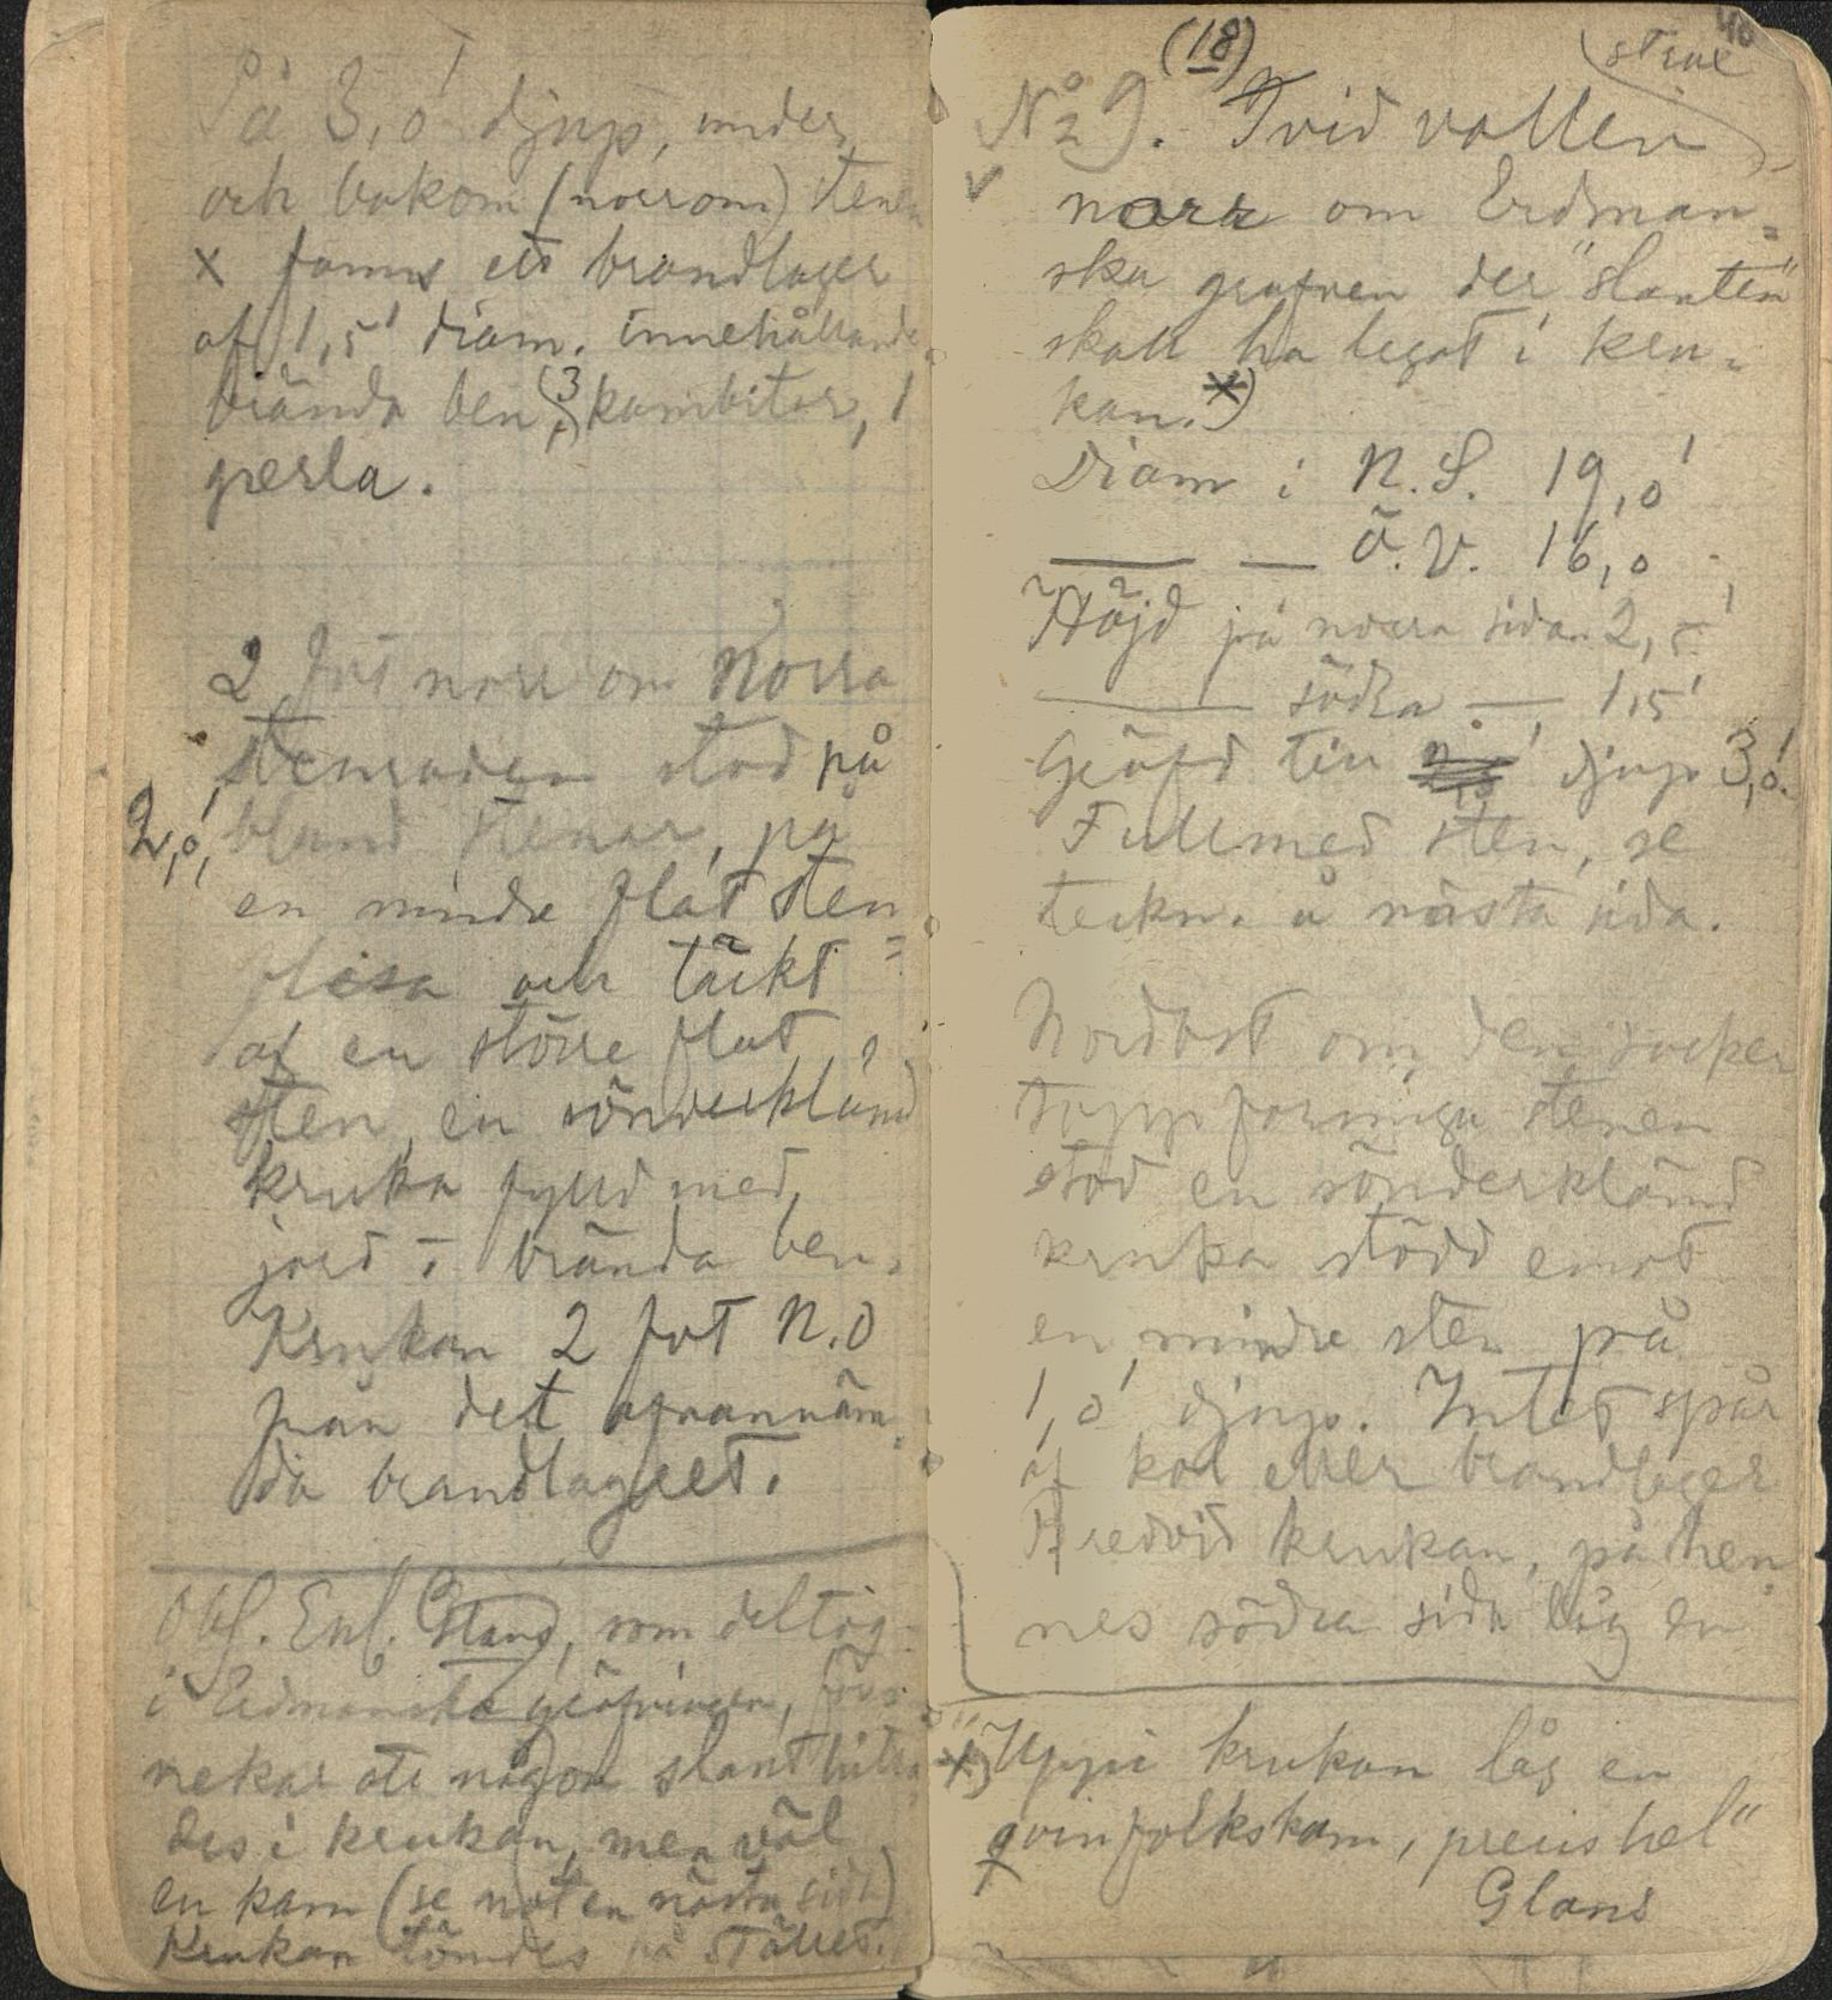 På 3,0' djup, under
och bakom (norrom) stenen
x fanns ett brandlager
af 1,5' diam. innehållande
brända ben, (3) kambitar, 1
perla.
2 fot norr om Norra
stenraden stod på
2,0', bland stenar, på
en mindre flat sten=
flisa och täckt
af en större flat
sten, en sönderklämd
kruka fylld med
jord o brända ben.
Krukan 2 fot N.O
från det ofvannäm=
da brandlagret.
Obs. Enl. Glans, som deltog
i Erdmanska gräfningen, för=
nekar att någon slant hitta=
des i krukan, men väl
en kam (se noten nästa sida)
Krukan tömdes på stället.
40
(18)
strax
No 9. Invid vallen
✓ norr om Erdman=
ska grafven der "slanten"
skall ha legat i kru=
kan. x)
Diam i N.S. 19,0'
— — Ö.V. 16,0
Höjd på norra sidan 2,5'
— södra — 1,5'
Gräfd till djup 3,0'.
Full med sten, se
teckn. å nästa sida.
Nordost om den socker
toppformiga stenen
stod en sönderklämd
kruka stödd emot
en mindre sten på
1,0' djup. Intet spår
af kol eller brandlager
Bredvid krukan, på hen=
nes södra sida låg en
x) "Uppi krukan låg en
qvinfolkskam, precis hel"
Glans